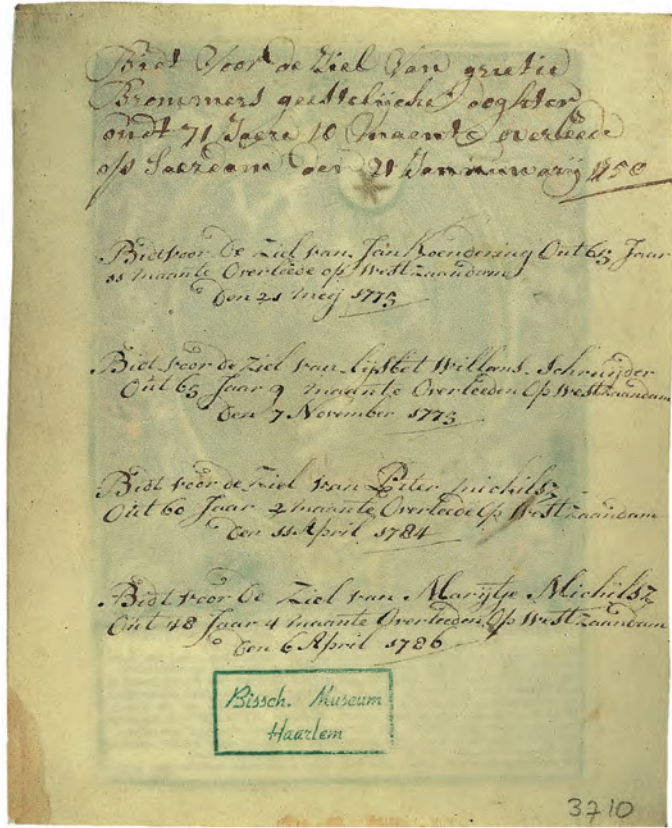 Bidt Voor de Ziel Van grietie
Brommers geestelijcke doghter
oudt 71 Jaere 10 Maente overleede
op Saerdam den 21 Januwarij 1750
Bidt voor de Ziel van Jan Koendering Out 65 Jaar
11 maante Overleede op Westzaandam
Den 21 Meij 1775
Bidt voor de Ziel van Lijsbet Willems Schruijder
Out 65 Jaar 9 maante Overleeden Op Westzaandam
Den 7 November 1775
Bidt voor de Ziel van Pieter Michilsz
Out 60 Jaar 2 maante Overleede Op Westzaandam
Den 11 April 1784
Bidt voor de Ziel van Marijtje Michilsz
Out 48 Jaar 4 maante Overleeden Op Westzaandam
Den 6 April 1786
Bissch. Museum
Haarlem
3710